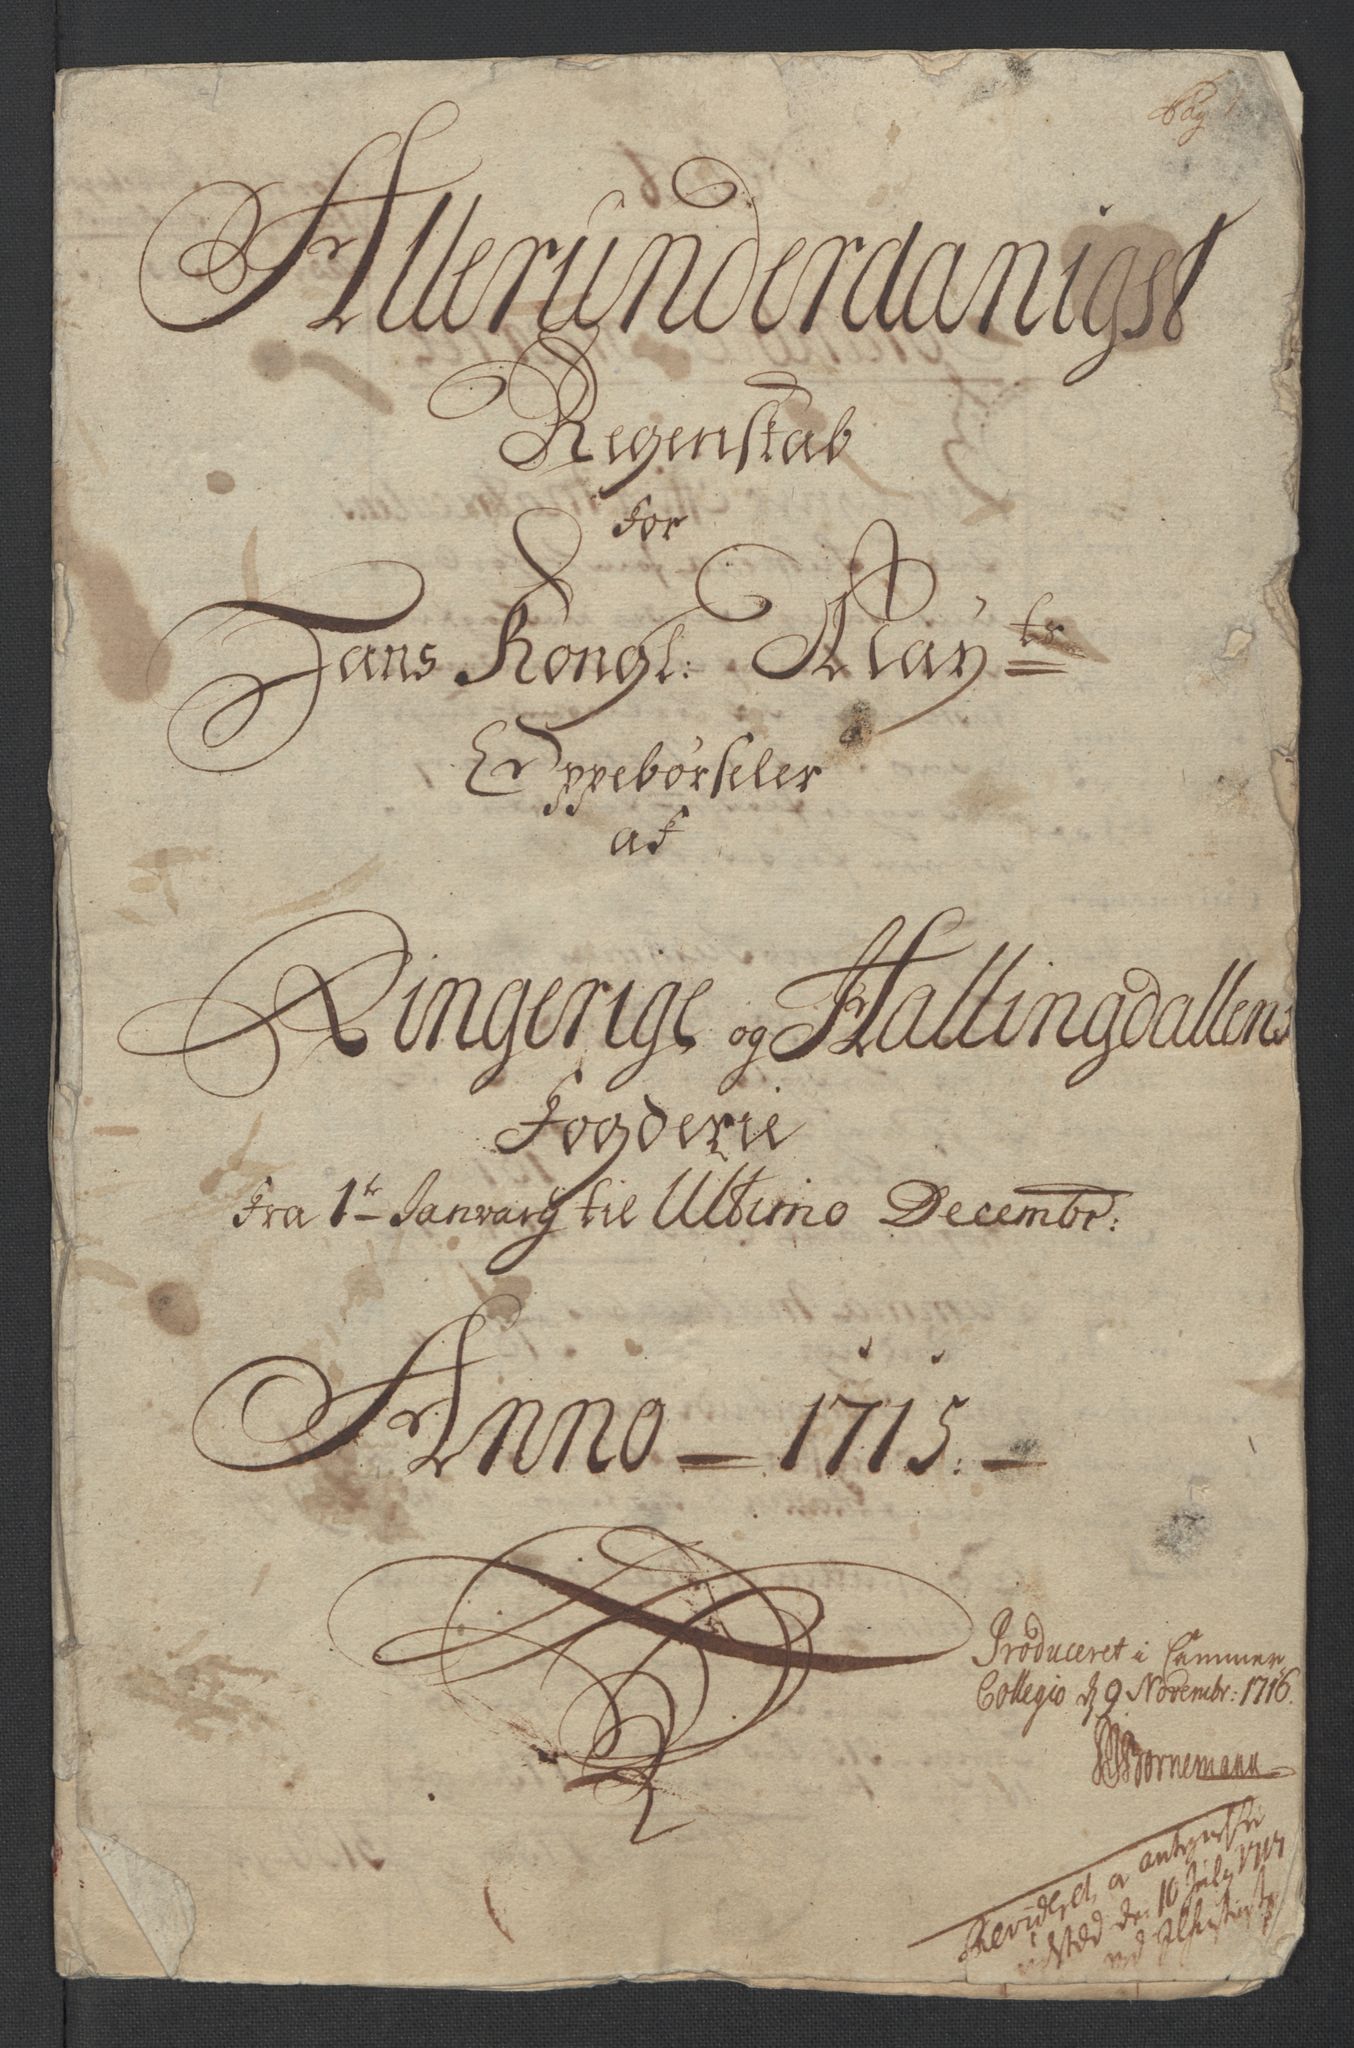 Pag 1
Allerunderdanigst
Regenskab
for
Hans Kongl: May<sup>ts</sup>
Oppebørseler
af
Ringerige og Hallingdallens
Fogderie
Fra 1<sup>te</sup> Januarij til Ultimo Decembr:
Anno = 1715. =
Produceret i Cammer
Collegio d 9 Novembr: 1716.
Bornemann
Revideret og
udsted den 10 July 1717
ved